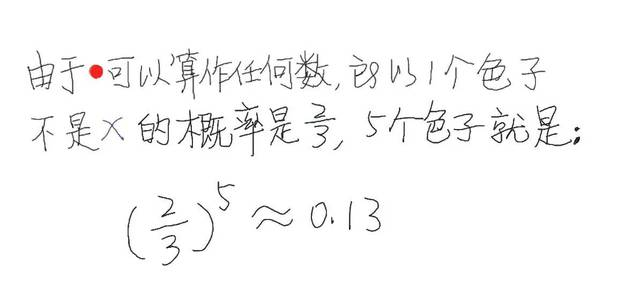 由于●可以算作任何数,所以1个色子
不是X的概率是2/3,5个色子就是:
(2/3)^5≈0.13